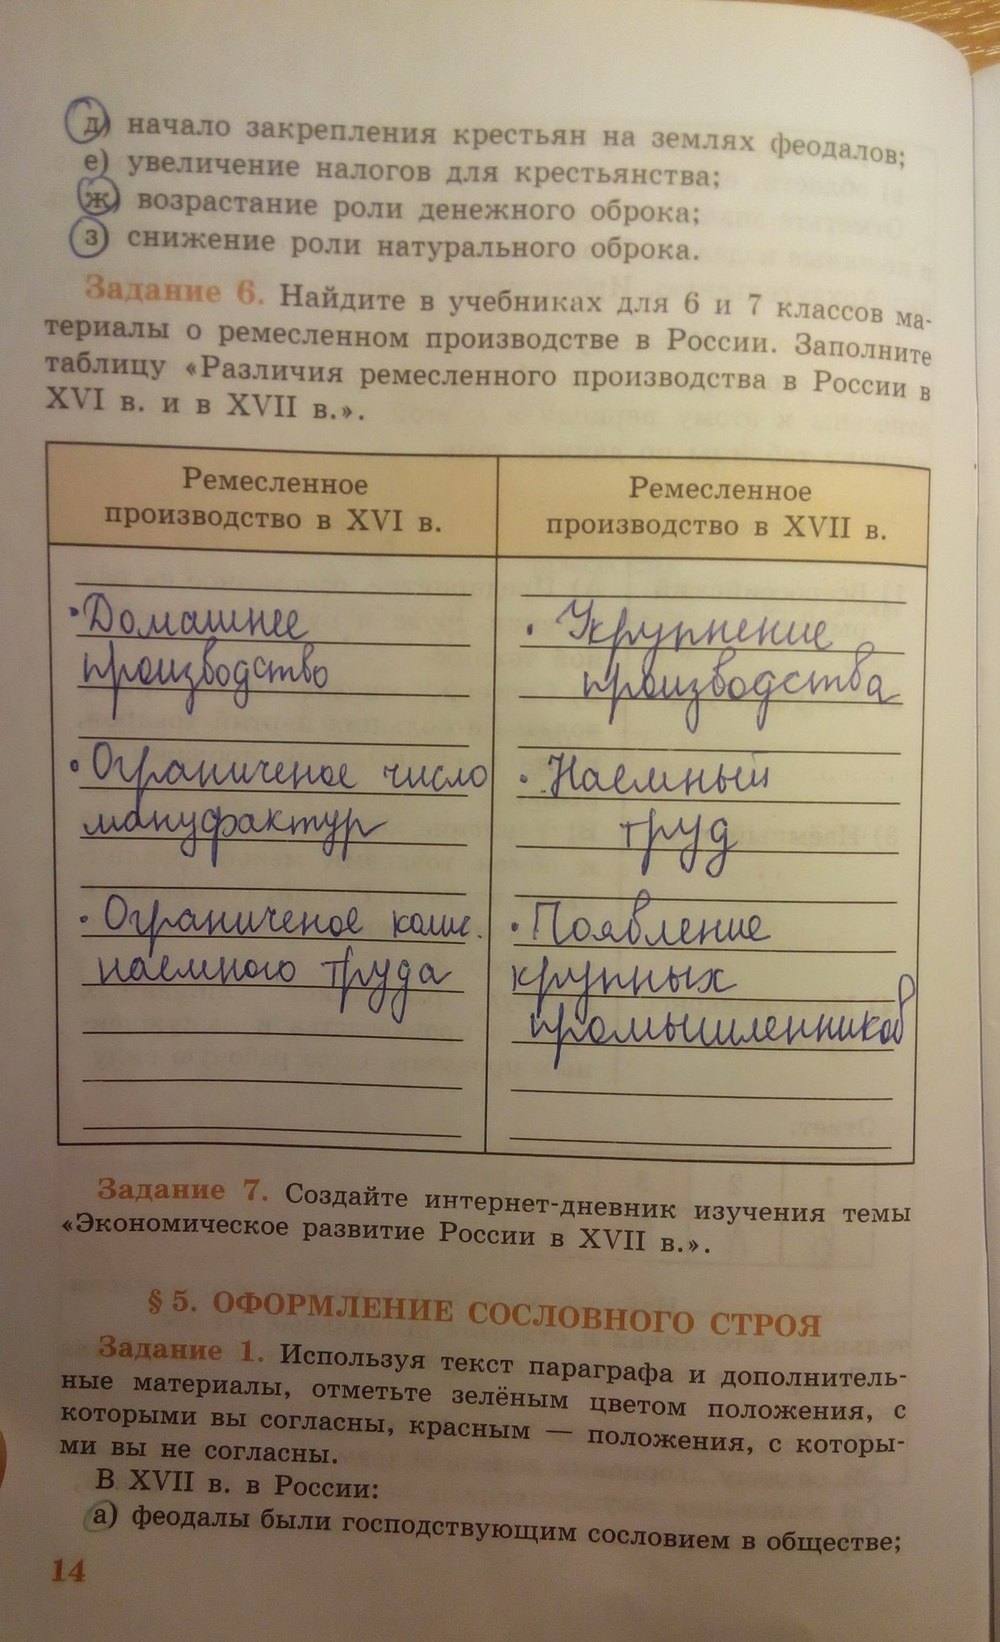 д) начало закрепления крестьян на землях феодалов;
е) увеличение налогов для крестьянства;
ж) возрастание роли денежного оброка;
з) снижение роли натурального оброка.
Задание 6. Найдите в учебниках для 6 и 7 классов ма-
териалы о ремесленном производстве в России. Заполните
таблицу «Различия ремесленного производства в России в
XVI в. и в XVII в.».
Ремесленное
производство в XVI в.
Ремесленное
производство в XVII в.
• Домашнее
производство
• Ограниченое число
мануфактур
• Ограниченое колич.
наемного труда
• Укрупнение
производства
• Наемный
труд
• Появление
крупных
промышленников
Задание 7. Создайте интернет-дневник изучения темы
«Экономическое развитие России в XVII в.».
§ 5. ОФОРМЛЕНИЕ СОСЛОВНОГО СТРОЯ
Задание 1. Используя текст параграфа и дополнитель-
ные материалы, отметьте зелёным цветом положения, с
которыми вы согласны, красным — положения, с которы-
ми вы не согласны.
В XVII в. в России:
а) феодалы были господствующим сословием в обществе;
14